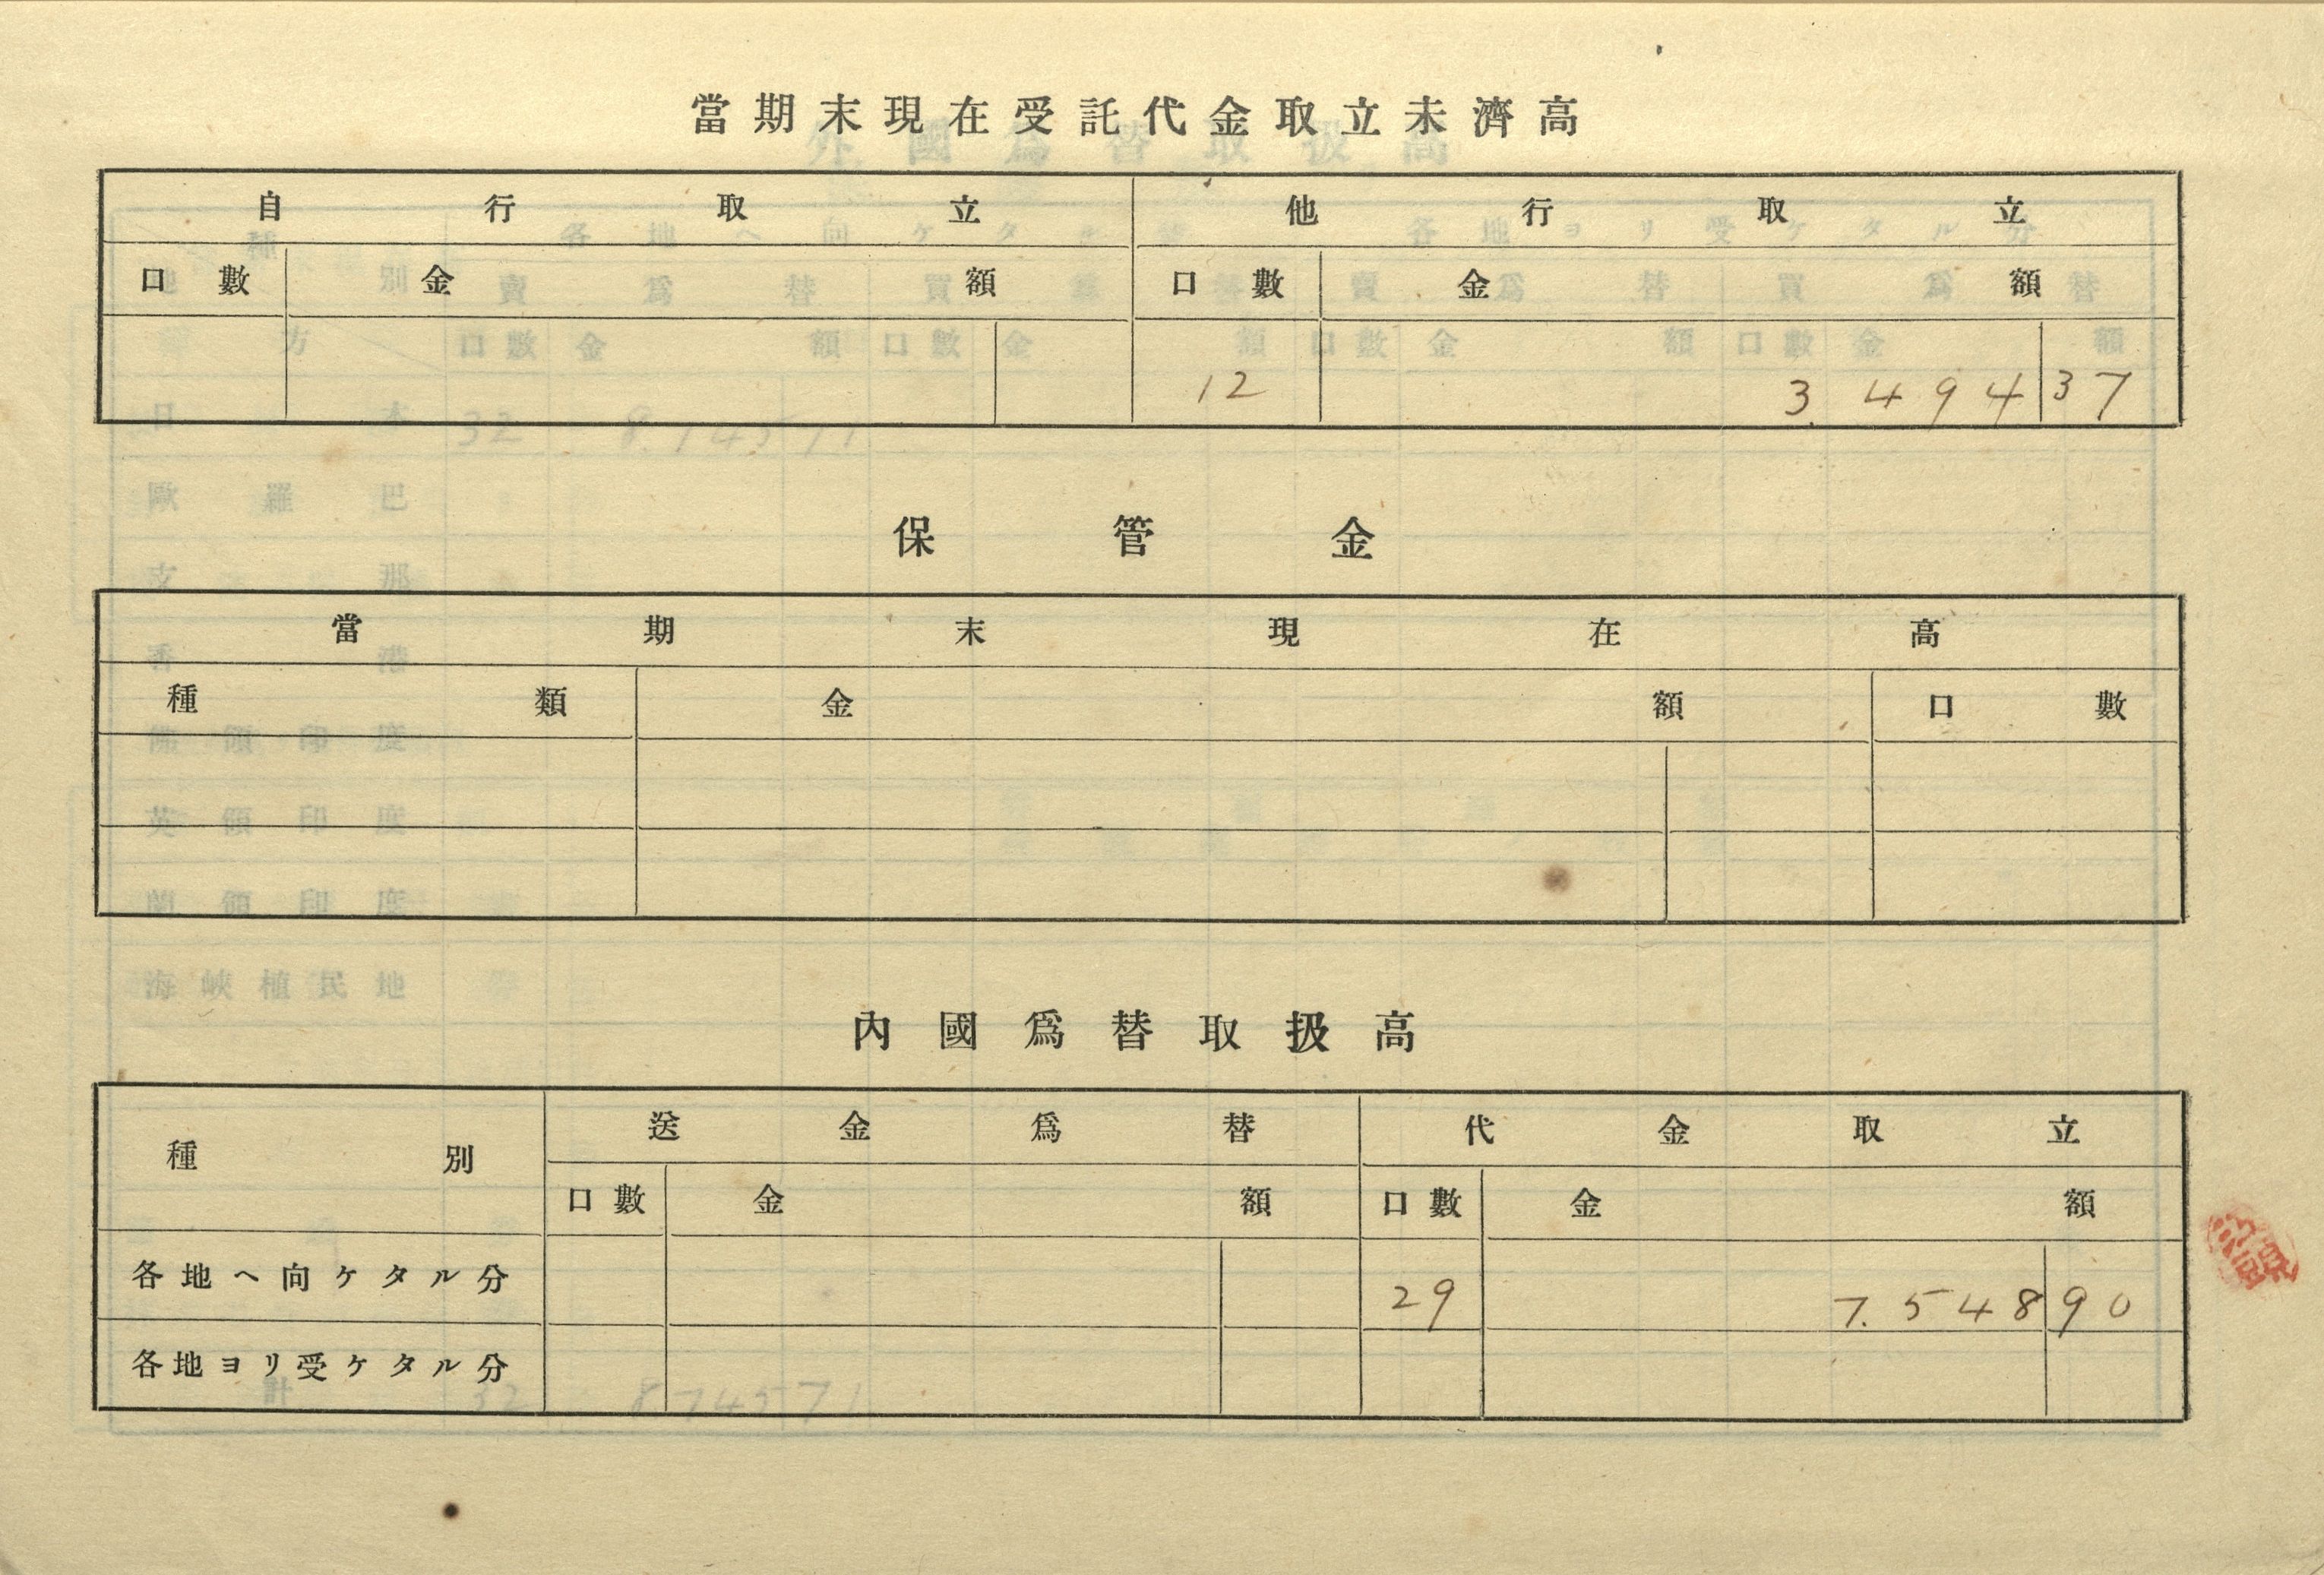 當期末現在受託代金取立未濟高
自行取立 他行取立
口數 金額 口數 金額
12 3.494 37
保管金
當期末現在高
種類 金額 口數
內國爲替取扱高
種別 送金爲替 代金取立
口數 金額 口數 金額
各地ヘ向ケタル分 29 7.548 90
各地ヨリ受ケタル分